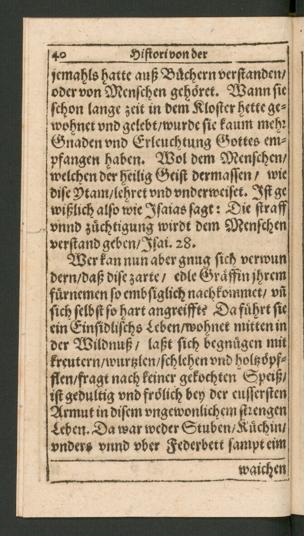 40 Histori von der
jemahls hatte auß Büchern verstanden/
oder von Menschen gehöret. Wann sie
schon lange zeit in dem Kloster hette ge-
wohnet vnd gelebt/wurde sie kaum mehr
Gnaden vnd Erleuchtung Gottes em-
pfangen haben. Wol dem Menschen/
welchen der heilig Geist dermassen/ wie
dise Ytam/lehret vnd vnderweiset. Ist ge
wißlich also wie Isaias sagt: Die straff
vnnd züchtigung wirdt dem Menschen
verstand geben/Isai. 28.
Wer kan nun aber gnug sich verwun
dern/daß dise zarte/ edle Gräffin jhrem
fürnemen so embsiglich nachkommet/ vñ
sich selbst so hart angreifft? Da führt sie
ein Einsidlischs Leben/wohnet mitten in
der Wildnuß/ laßt sich begnügen mit
kreutern/wurtzlen/schlehen vnd holtzöpf-
flen/fragt nach keiner gekochten Speiß/
ist gedultig vnd frölich bey der eussersten
Armut in disem vngewonlichem strengen
Leben. Da war weder Stuben/Küchin/
vnders vnnd vber Federbett sampt eim
waichen